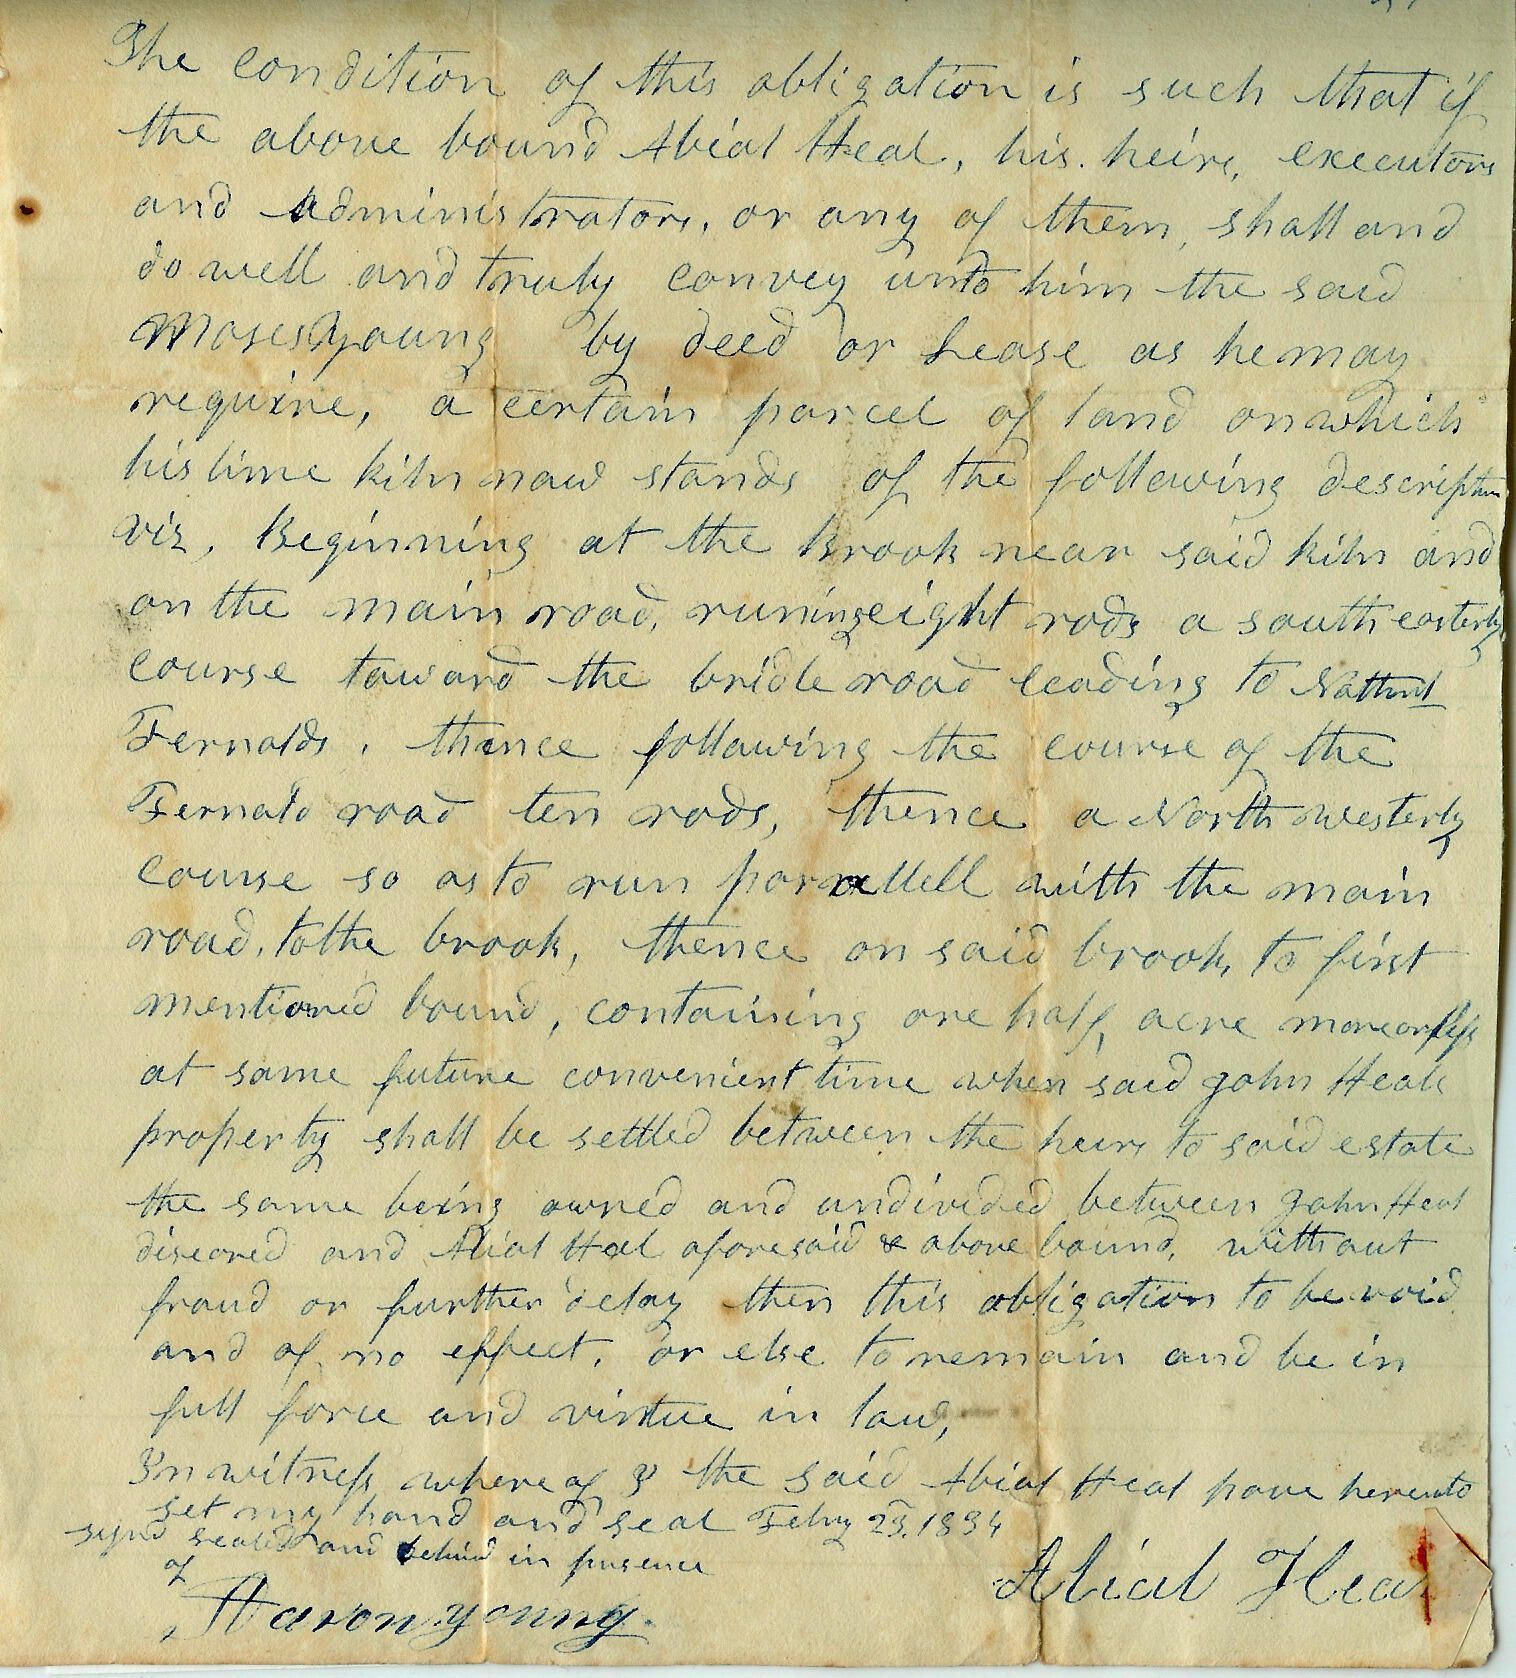 The condition of this obligation is such that if
the above bound Abial Heal, his heirs, executors
and administrators, or any of them, shall and
do well and truly convey unto him the said
Moses Young by deed or Lease as he may
require, a certain parcel of land on which
his lime kiln now stands of the following description
viz, Beginning at the Brook near said kiln and
on the main road, runing eight rods a south easterly
course toward the bridle road leading to Nathnl
Fernalds, thence following the course of the
Fernald road ten rods, thence a North westerly
course so as to run parrallell with the main
road, to the brook, thence on said brook, to first
mentioned bound, containing one half, acre more or less
at some future convenient time when said John Heals
property shall be settled between the heirs to said estate
the same being owned and undivided between John Heal
diseared and Abial Heal aforesaid & above bound, without
fraud or further delay then this obligation to be void
and of no effect, or else to remain and be in
full force and virtue in law,
In witness where of I the said Abial Heal have hereunto
set my hand and seal Feby 23, 1834
signd sealed and in presence
of
Abial Hea
Aaron Young